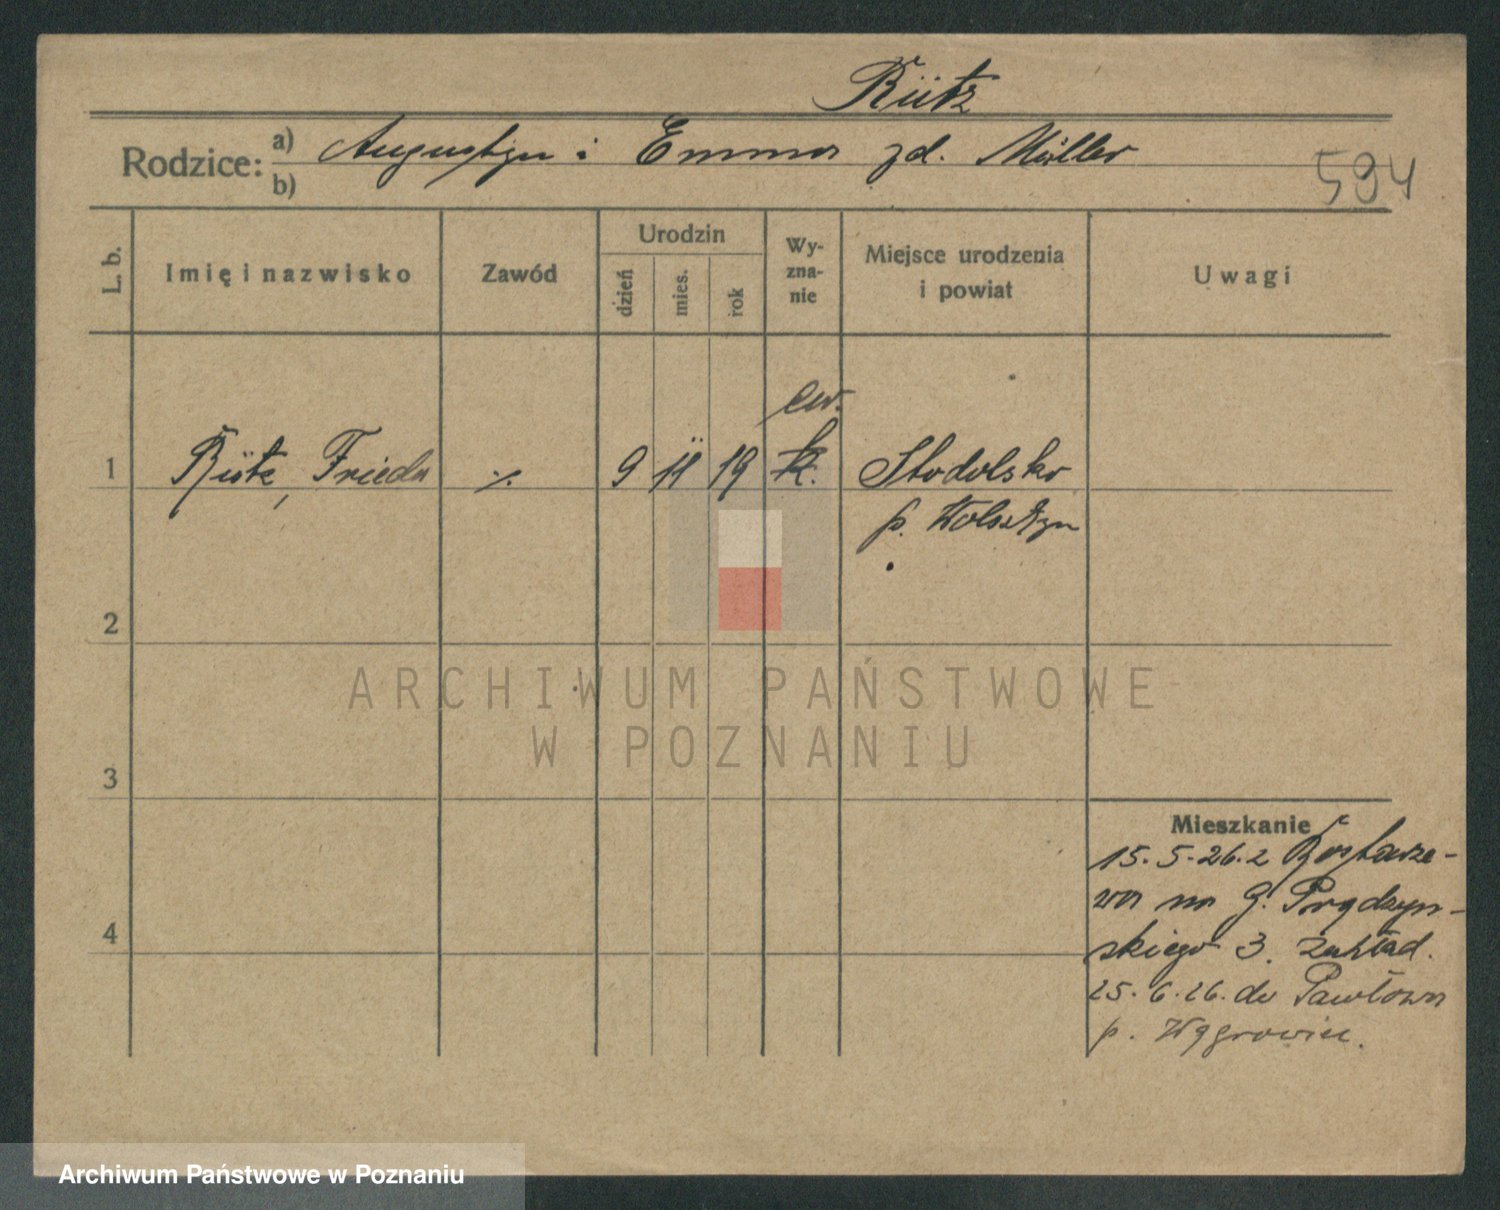 Rütz
Rodzice: a) Augustyn i Emma zd. Müller
b)
594
L. b. Imię i nazwisko Zawód Urodzin dzień mies. rok Wy-zna-nie Miejsce urodzenia i powiat Uwagi
ew.
1 Rütz, Frieda ./. 9 11 19 k. Stodolsko
p. Wolsztyn
2
3
4
Mieszkanie
15.5.26. z Rostarze-
wa na G. Prądzyń-
skiego 3. zakład.
25.6.26. do Pawłowa
p. Wągrowiec.
ARCHIWUM PAŃSTWOWE
W POZNANIU
Archiwum Państwowe w Poznaniu